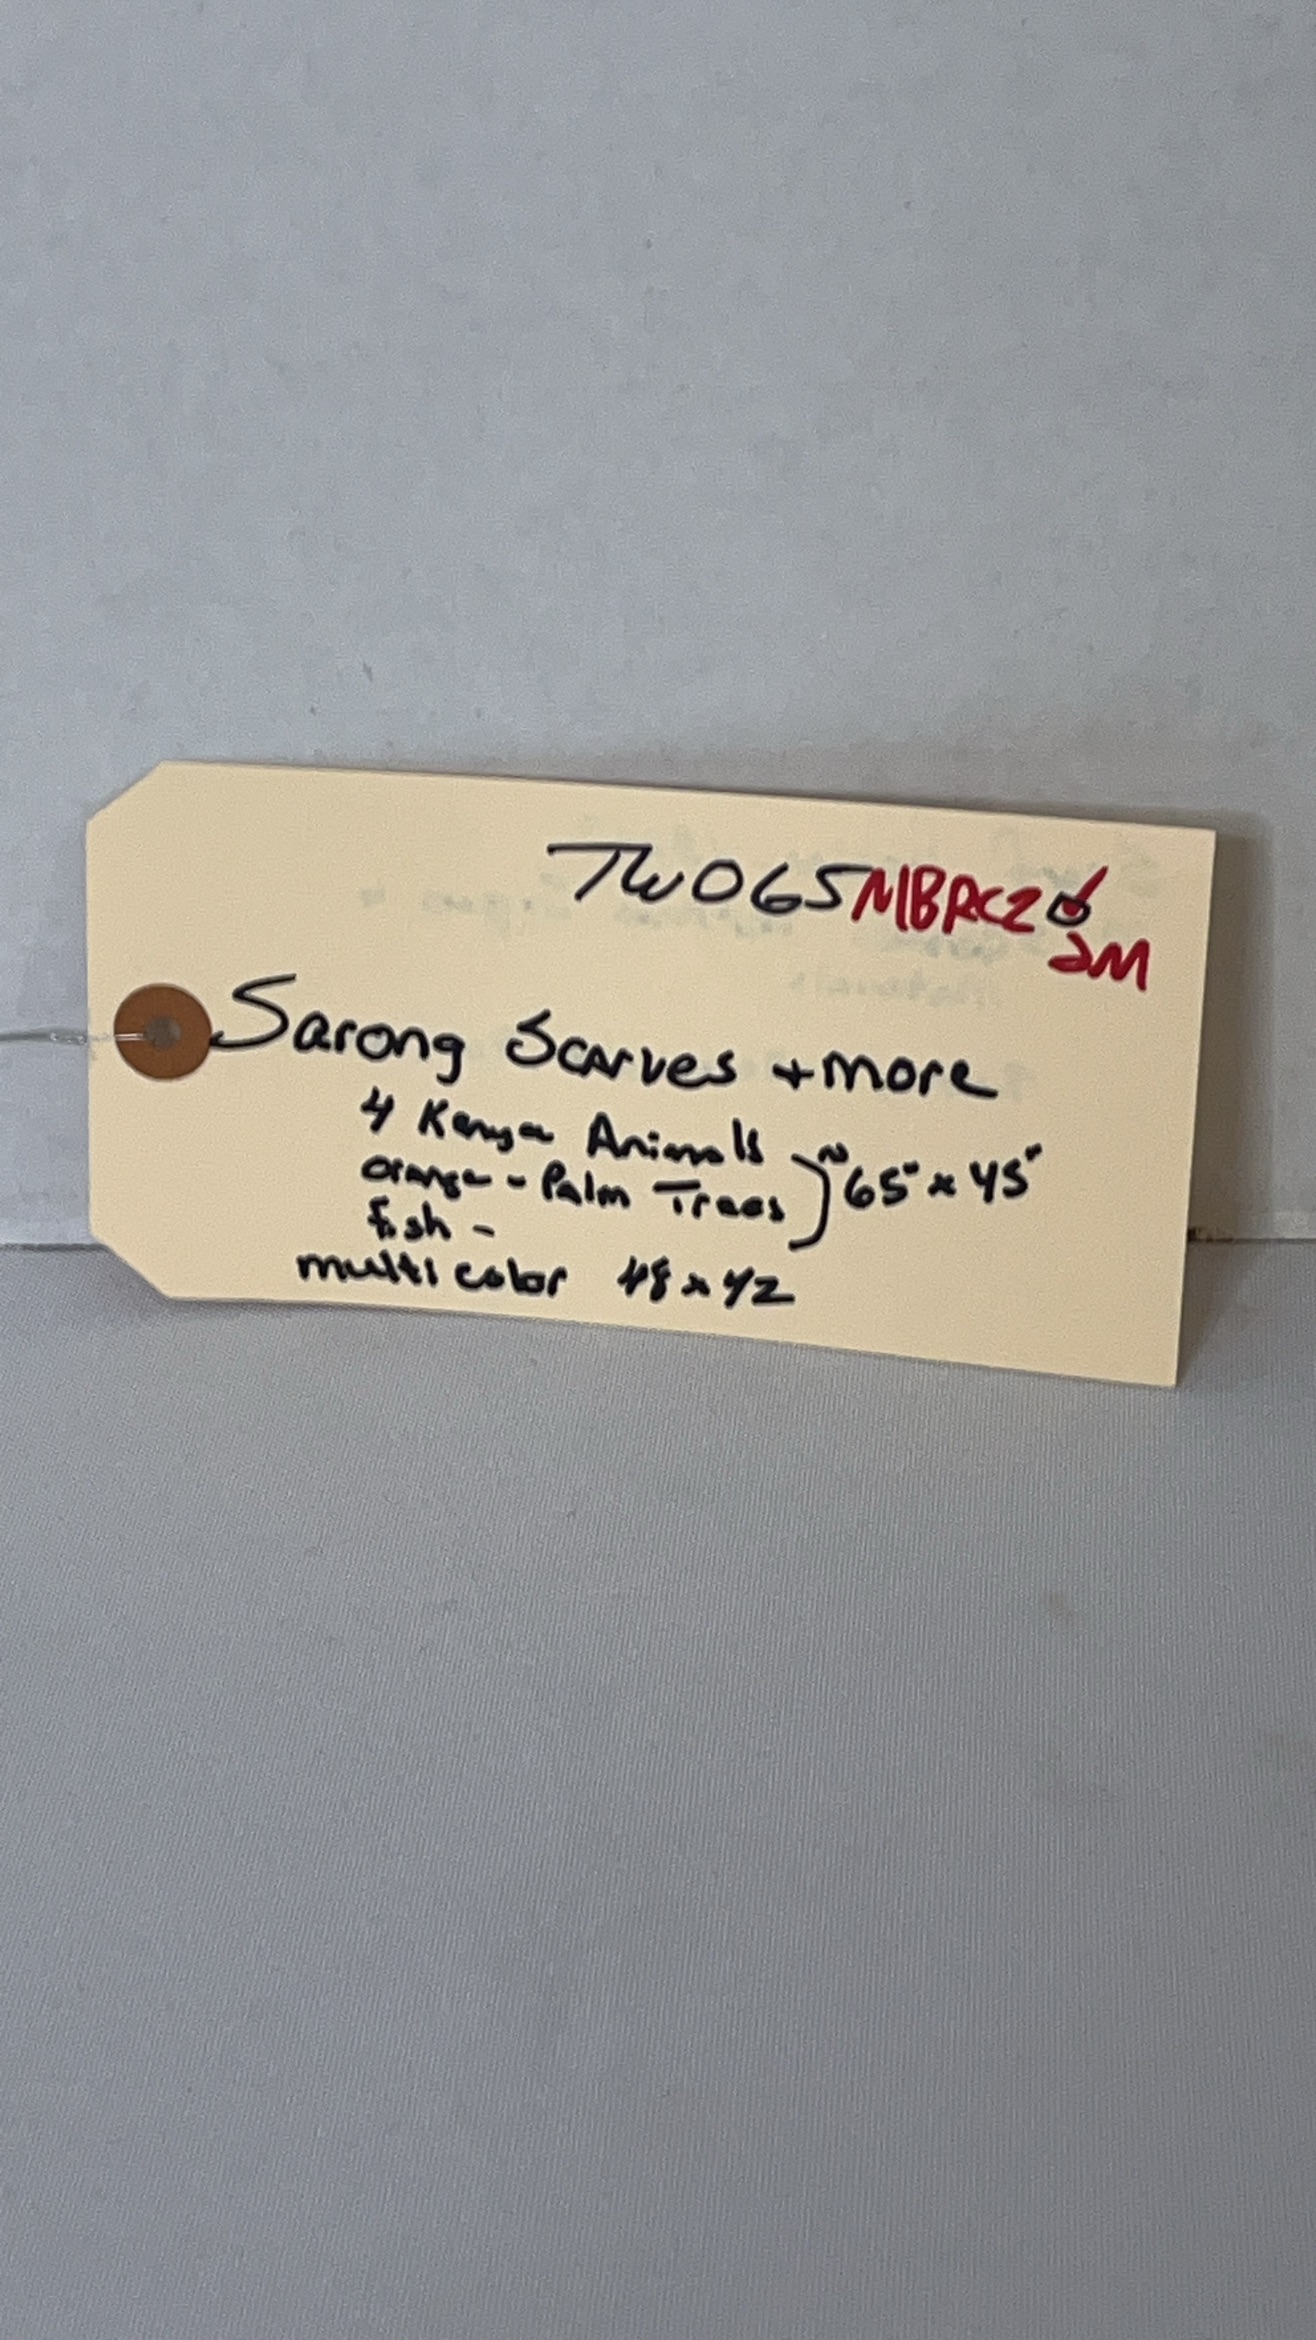 TW065MBRC2
2M
Sarong Scarves + more
4 Kenya Animals
orange - Palm Trees ~65" x 45"
fish -
multi color 48 x 42